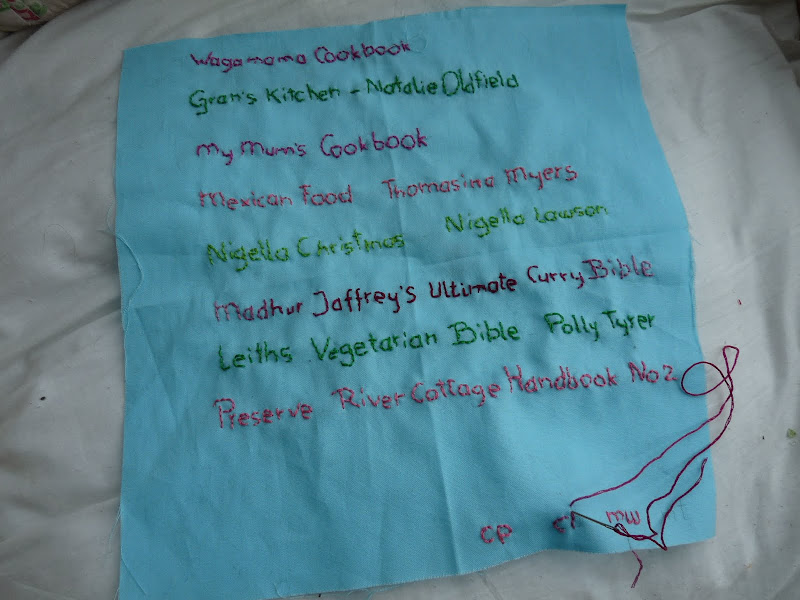 Wagamama Cookbook
Gran's Kitchen - Natalie Oldfield
My Mum's Cookbook
Mexican Food Thomasina Myers
Nigella Christmas Nigella Lawson
Madhur Jaffrey's Ultimate Curry Bible
Leiths Vegetarian Bible Polly Tyrer
Preserve River Cottage Handbook No2
CP MW